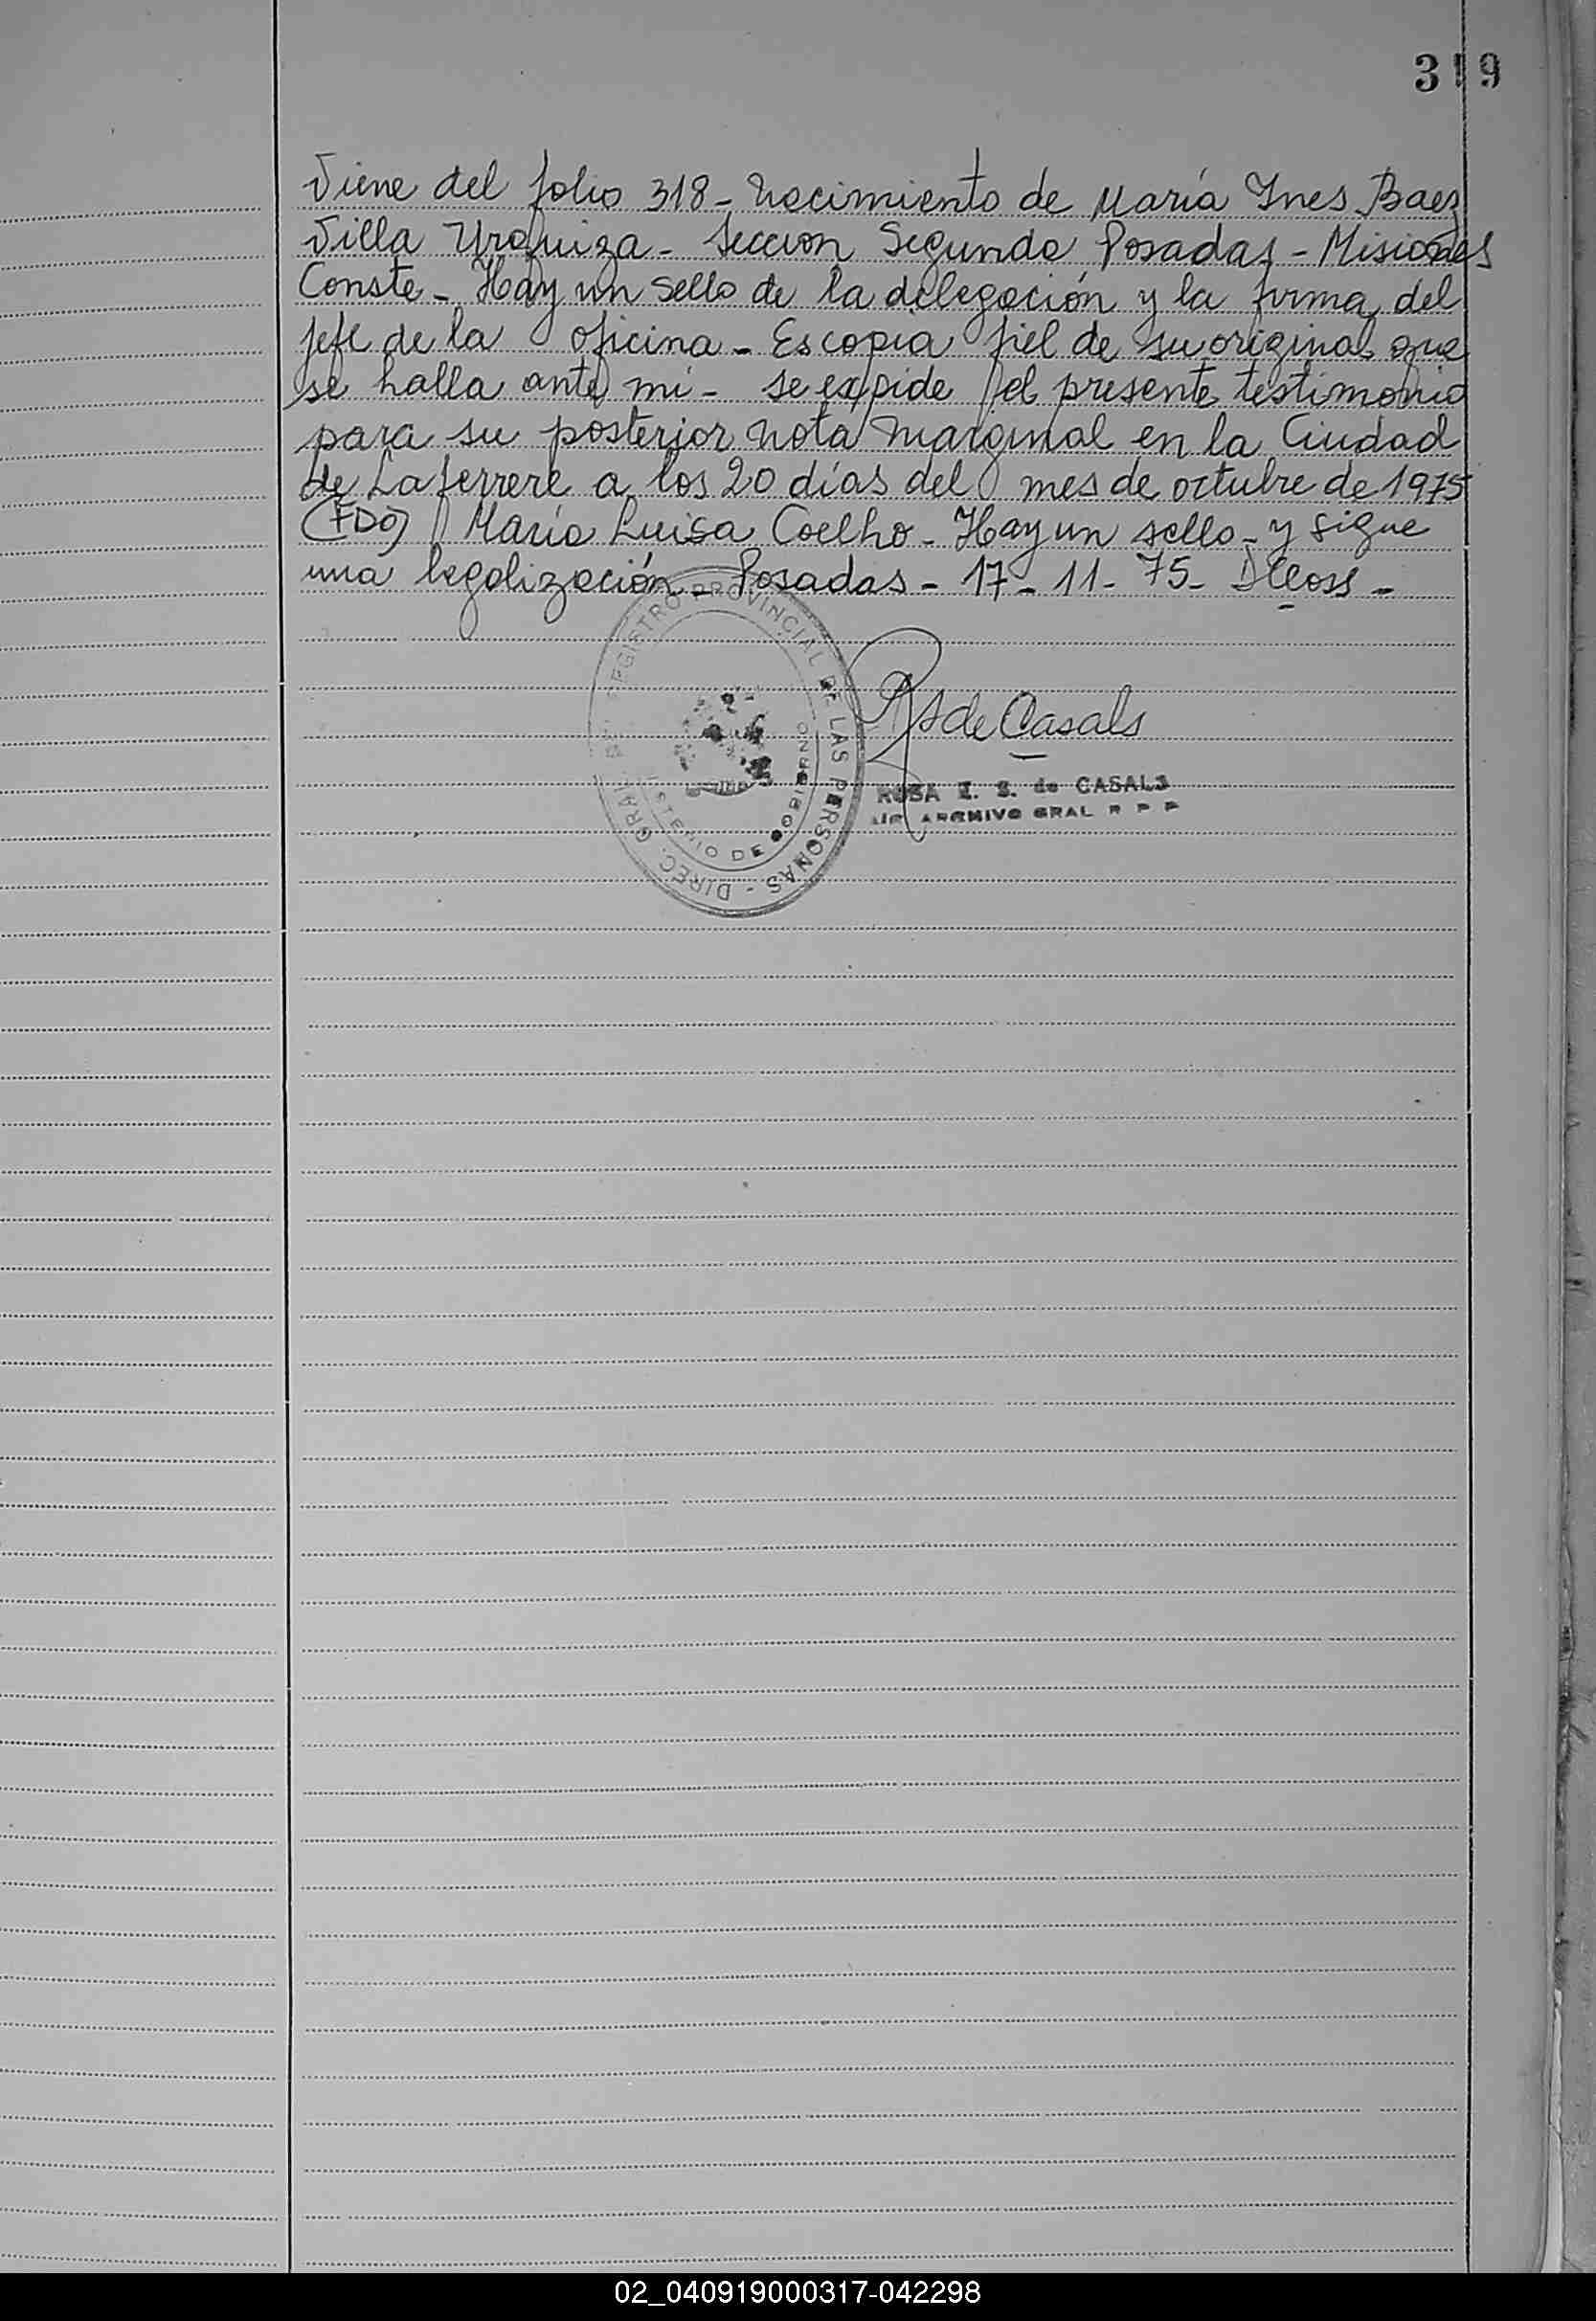 319
Viene del folio 318 - Nacimiento de María Ines Baez
Villa Urquiza - Seccion Segunda Posadas - Misiones
Conste - Hay un sello de la delegación y la firma del
jefe de la oficina - Es copia fiel de su original que
se halla ante mi - se expide el presente testimonio
para su posterior nota marginal en la Ciudad
de Laferrere a los 20 días del mes de octubre de 1975
(FDO) María Luisa Coelho - Hay un sello - y sigue
una legalización - Posadas - 17 - 11 - 75 -
REGISTRO PROVINCIAL DE LAS PERSONAS - DIREC. GRAL.
ISTERIO DE GOBIERNO
RS de Casals
ROSA E. S. de CASALS
ARCHIVO GRAL R P P
02_040919000317-042298